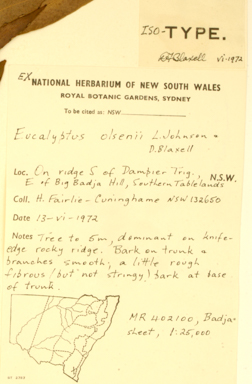 ISO-TYPE.
D. Blaxell vi-1972
EX NATIONAL HERBARIUM OF NEW SOUTH WALES
ROYAL BOTANIC GARDENS, SYDNEY
To be cited as: NSW
Eucalyptus olsenii L. Johnson &
D. Blaxell
Loc. On ridge S of Dampier Trig., N.S.W.
E of Big Badja Hill, Southern Tablelands
Coll. H. Fairlie-Cuninghame NSW 132650
Date 13-vi-1972
Notes Tree to 5m, dominant on knife-
edge rocky ridge. Bark on trunk &
branches smooth; a little rough
fibrous (but not stringy) bark at base
of trunk.
MR 402100, Badja-
sheet, 1:25,000